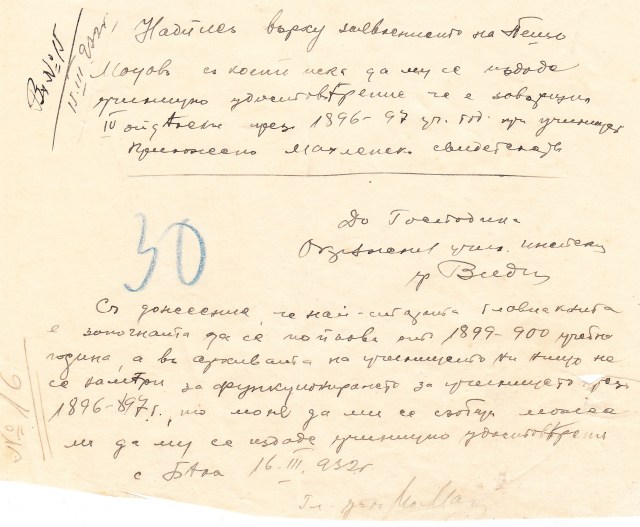 Вх. № 15
15.III.932 г.
Надпись върху заявлението на Пешо
с което иска да му се издаде
училищно удостовѣрение че е завършил
IV отдѣление през 1896-97 уч. год. при училището
Приложено свидетелство
До Господина
Окр. учил. инспектор
гр. Видин
30
Съ донесение, че най-старата главна книга
е започната да се ползова от 1899-900 учебна
година, а въ архивата на училището ни нищо не
се намѣри за функционирането за училището през
1896-897 г., то моля да ми се съобщи може
ли да му се издаде училищно удостовѣрение
№ 16
с. 16.III.932 г.
Гл. учит.